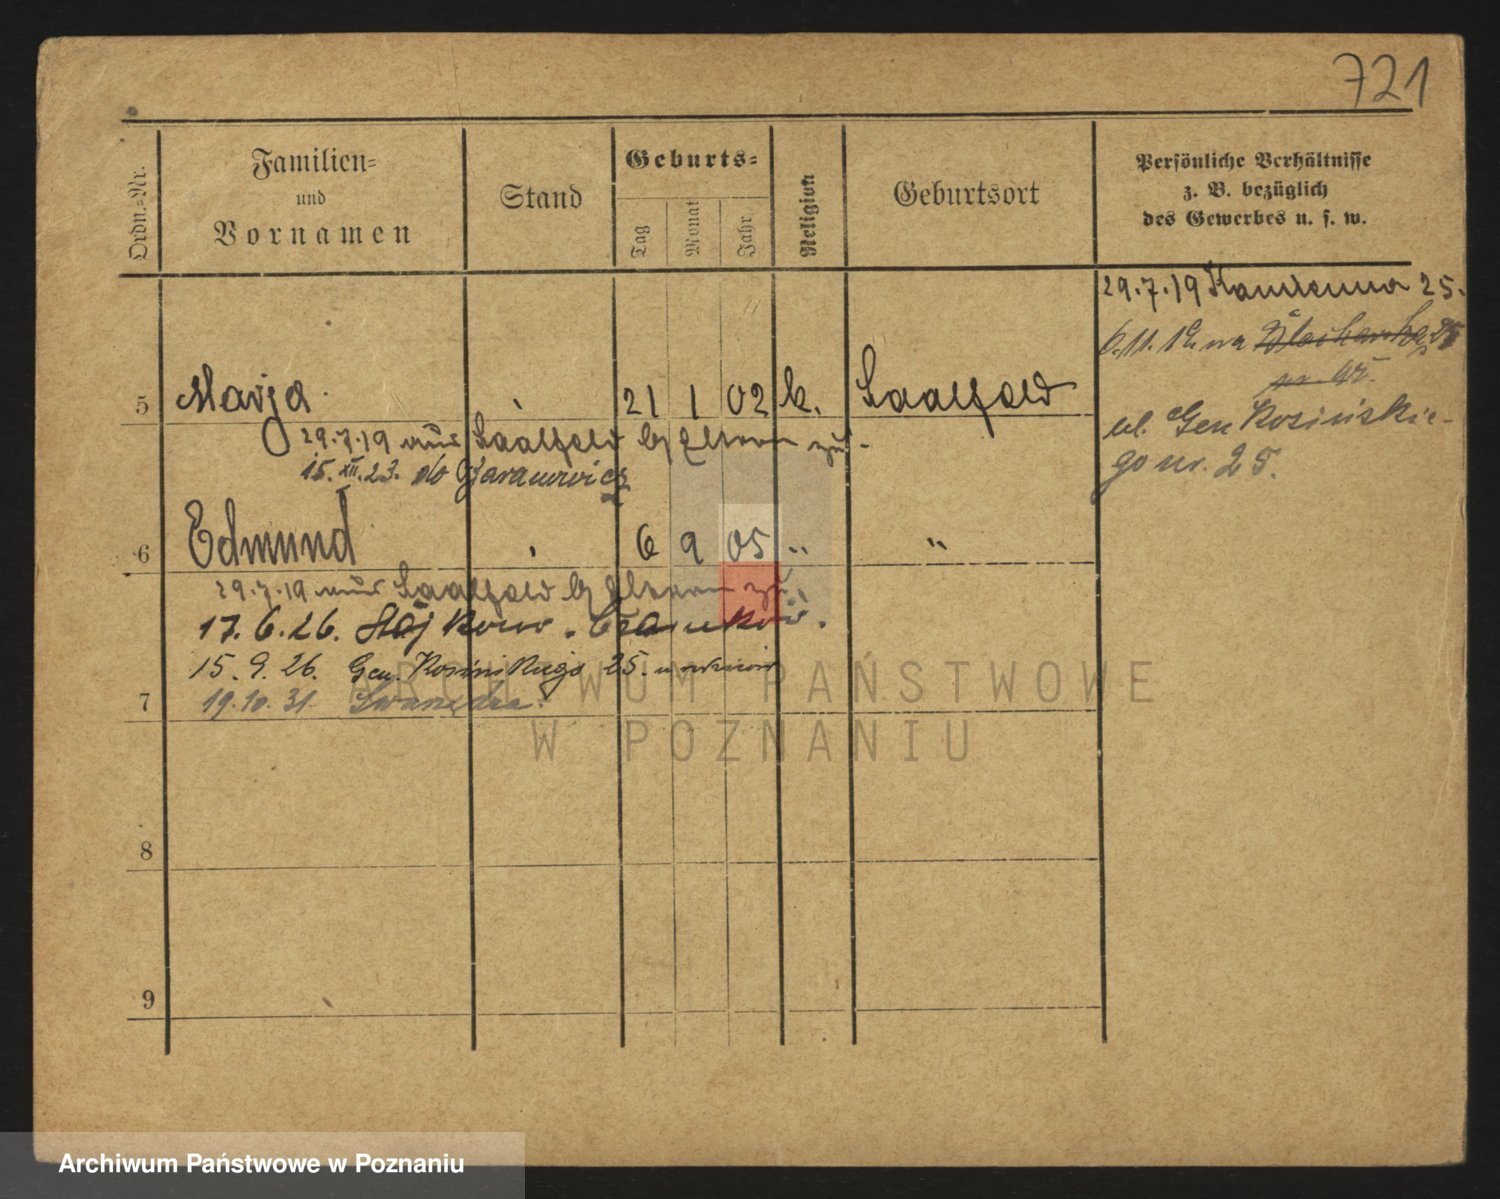 721
Ordn.-Nr.
Familien-
und
Vornamen
Stand
Geburts-
Tag
Monat
Jahr
Religion
Geburtsort
Persönliche Verhältnisse
z. B. bezüglich
des Gewerbes u. s. w.
29.7.19 25.
6.11.
ul. Gen Kosińskie-
go nr. 25.
5 Marja 21 1 02 k. Saalfeld
29.7.19 aus Saalfeld Eltern zu.
15.XII.23. do Baranowicz
6 Edmund 6 9 05 " "
29.7.19 aus Saalfeld Eltern zu.
17.6.26. Stajkowo. Czarnków.
15.9.26. Gen. Kosińskiego 25.
7
19.10.31. Swarzędza.
8
9
ARCHIWUM PAŃSTWOWE
W POZNANIU
Archiwum Państwowe w Poznaniu